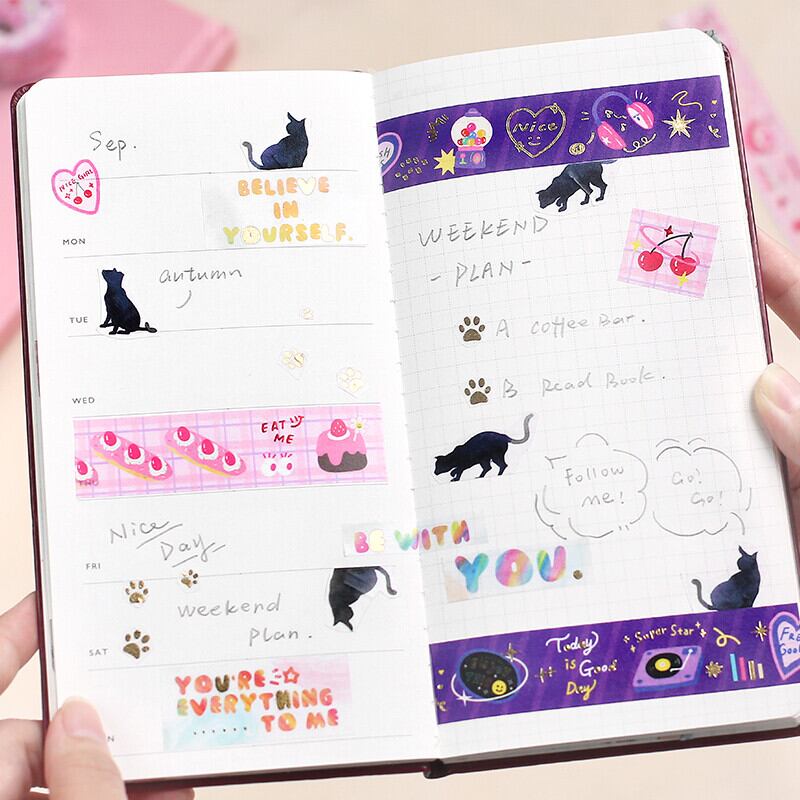 Sep.
NICE GIRL
BELIEVE
IN
YOURSELF.
MON
autumn
TUE
WED
EAT
ME
THU
Nice
Day
FRI
weekend
plan.
SAT
YOU'RE
EVERYTHING
...... TO ME
Nice
WEEKEND
- PLAN -
A coffee Bar.
B Read Book.
Follow
me!
Go!
Go!
BE WITH
YOU.
Today
is Good
Day
Super Star